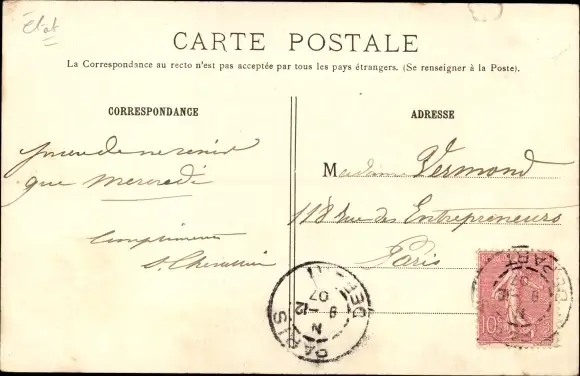 état
CARTE POSTALE
La Correspondance au recto n'est pas acceptée par tous les pays étrangers. (Se renseigner à la Poste).
CORRESPONDANCE
ADRESSE
que mercredi
Compliments
Madame Vermond
118 Rue des Entrepreneurs
Paris
PARIS
8
12
07
10